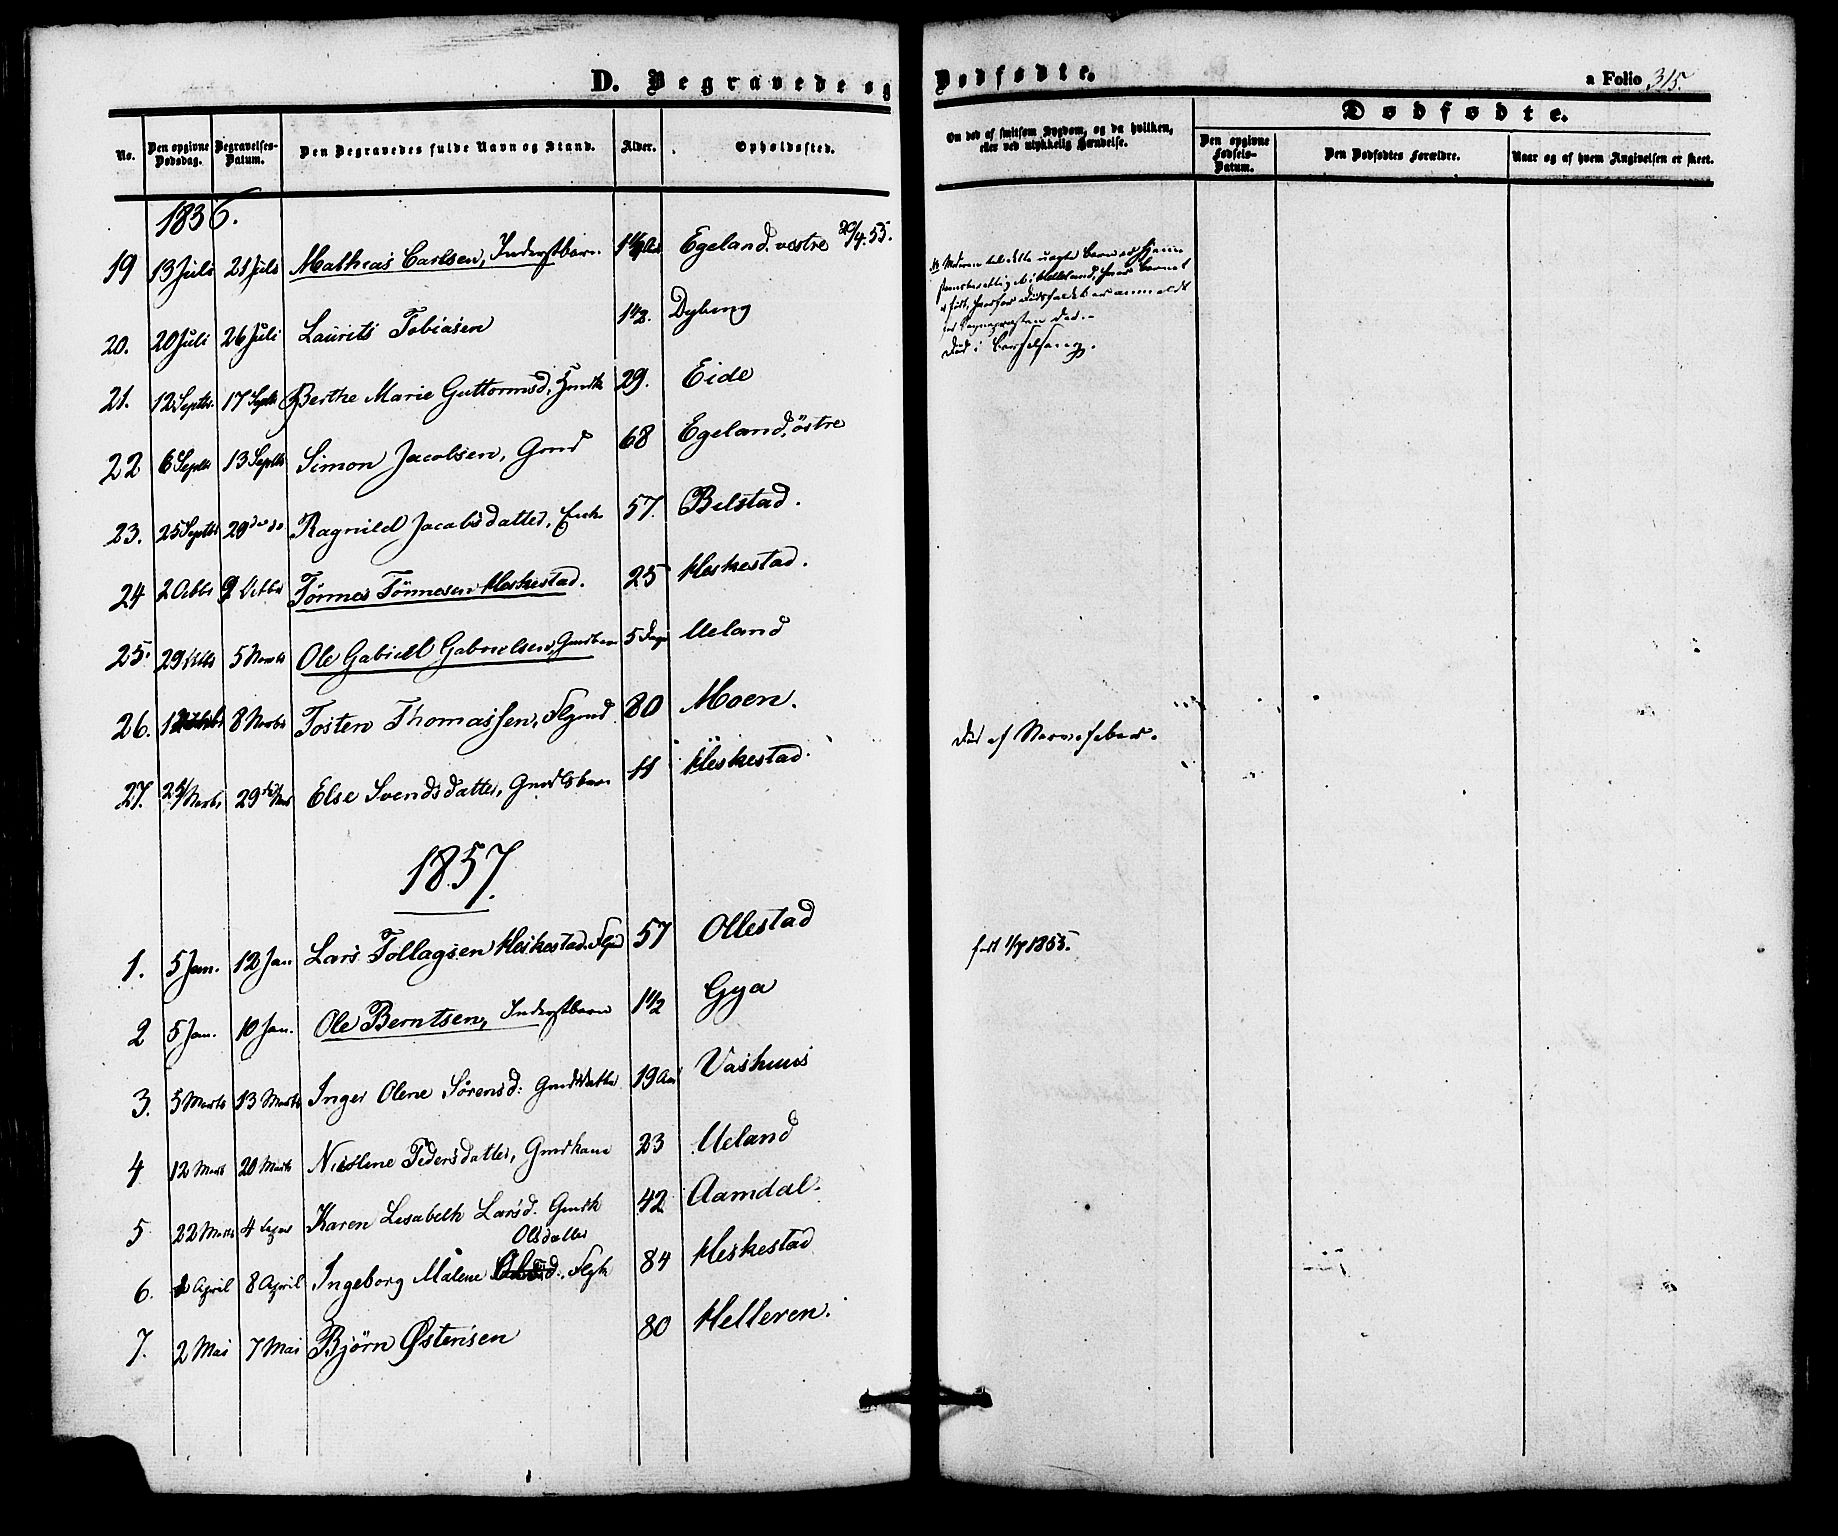 D. Begravede og Dødfødte.
a Folio 315.
No.
Den opgivne Dødsdag.
Begravelses-Datum.
Den Begravedes fulde Navn og Stand.
Alder.
Opholdssted.
Om død af smitsom Sygdom, og da hvilken, eller ved ulykkelig Hændelse.
Dødfødte.
Den opgivne Fødsels-Datum.
Den Dødfødtes Forældre.
Naar og af hvem Angivelsen er skeet.
1856.
19 13 Juli 21 Juli Mathias Carlsen, Inderstbarn Egeland vestre 20/4. 55.
20. 20 Juli 26 Juli Laurits Tobiasen 1 1/2. Dybing
21. 12 Septbr. 17 Septbr Berthe Marie Guttormsd, Gmdk 29. Eide
Død i Barselseng.
22 6 Septbr 13 Septbr Simon Jacobsen, Gmd 68 Egeland, östre
23. 25 Septbr 28 do Ragnild Jacobsdatter, Enke 57. Bilstad.
24 2 Octbr 9 Octbr Tönnes Tönnesen Heskestad. 25 Heskestad.
25. 29 5 Novbr Ole Gabriel Gabrielsen, Gmdbarn 5 Dage Ueland
26. 8 Novbr Tosten Thomassen, Flgmd 80 Moen.
Død af Nervefeber.
27. 24 Novbr 29 Else Svendsdatter, Gmdsbarn 11 Heskestad.
1857.
1. 5 Jan. 12 Jan Lars Tollagsen Heskestad, 57 Ollestad
2 5 Jan. 10 Jan. Ole Berntsen, Inderstbarn 1 1/2 Gya
født 1/7 1855.
3. 5 Marts 13 Marts Inger Olene Sörensd: Gmdsdatter 19 Aar Vashuus
4 12 Marts 20 Marts Nicoline Pedersdatter, Gmdkone 23 Ueland
5 22 Marts 4 Karen Lisabeth Larsd. Gmdk 42 Aamdal.
Olsdatter
6. April 8 April Ingeborg Malene Flgk 84 Heskestad
7. 2 Mai 7 Mai Björn Østensen 80 Helleren.